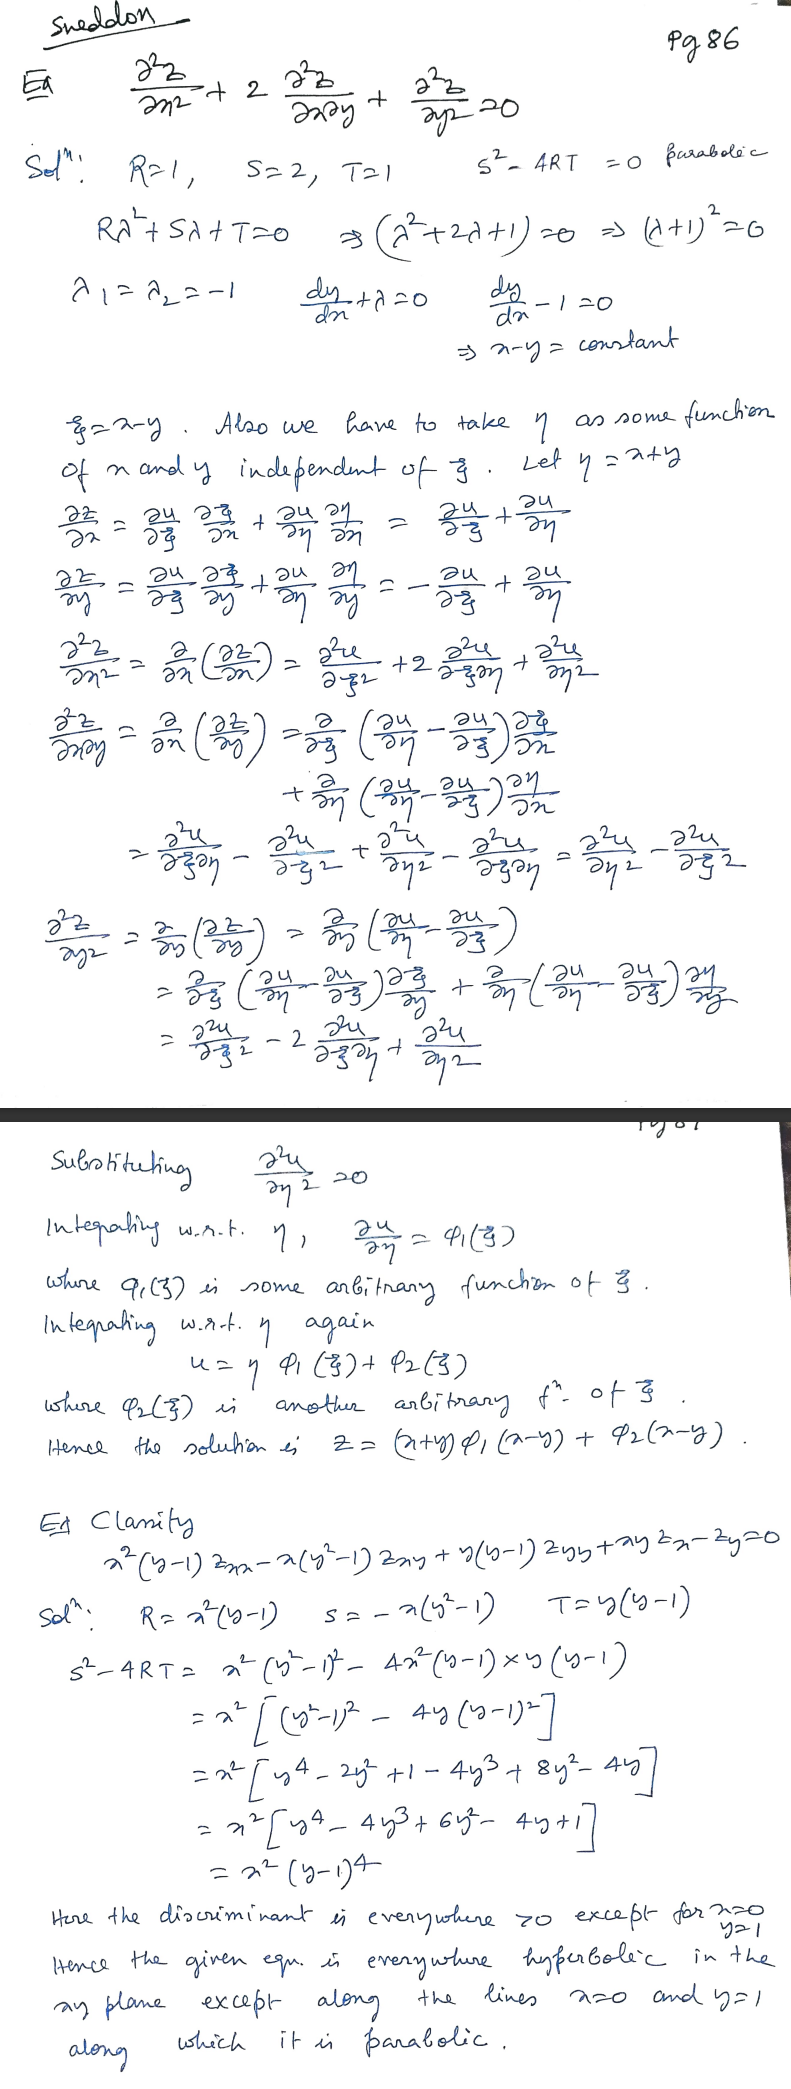 Sneddon
Pg 86
Ex ∂²z/∂x² + 2 ∂²z/∂x∂y + ∂²z/∂y² = 0
Solⁿ: R=1, S=2, T=1 S² - 4RT = 0 parabolic
Rλ² + Sλ + T = 0 ⇒ (λ²+2λ+1) = 0 ⇒ (λ+1)² = 0
λ₁ = λ₂ = -1 dy/dx + λ = 0 dy/dx - 1 = 0
⇒ x-y = constant
ξ = x-y. Also we have to take η as some function
of x and y independent of ξ. Let η = x+y
∂z/∂x = ∂u/∂ξ ∂ξ/∂x + ∂u/∂η ∂η/∂x = ∂u/∂ξ + ∂u/∂η
∂z/∂y = ∂u/∂ξ ∂ξ/∂y + ∂u/∂η ∂η/∂y = -∂u/∂ξ + ∂u/∂η
∂²z/∂x² = ∂/∂x (∂z/∂x) = ∂²u/∂ξ² + 2 ∂²u/∂ξ∂η + ∂²u/∂η²
∂²z/∂x∂y = ∂/∂x (∂z/∂y) = ∂/∂ξ (∂u/∂η - ∂u/∂ξ) ∂ξ/∂x
+ ∂/∂η (∂u/∂η - ∂u/∂ξ) ∂η/∂x
= ∂²u/∂ξ∂η - ∂²u/∂ξ² + ∂²u/∂η² - ∂²u/∂ξ∂η = ∂²u/∂η² - ∂²u/∂ξ²
∂²z/∂y² = ∂/∂y (∂z/∂y) = ∂/∂y (∂u/∂η - ∂u/∂ξ)
= ∂/∂ξ (∂u/∂η - ∂u/∂ξ) ∂ξ/∂y + ∂/∂η (∂u/∂η - ∂u/∂ξ) ∂η/∂y
= ∂²u/∂ξ² - 2 ∂²u/∂ξ∂η + ∂²u/∂η²
Substituting ∂²u/∂η² = 0
Integrating w.r.t. η, ∂u/∂η = φ₁(ξ)
where φ₁(ξ) is some arbitrary function of ξ.
Integrating w.r.t. η again
u = η φ₁(ξ) + φ₂(ξ)
where φ₂(ξ) is another arbitrary fⁿ. of ξ.
Hence the solution is z = (x+y) φ₁(x-y) + φ₂(x-y).
Ex Classify
x²(y-1) zxx - x(y²-1) zxy + y(y-1) zyy + xy zx - zy = 0
Solⁿ: R = x²(y-1) S = -x(y²-1) T = y(y-1)
S² - 4RT = x²(y²-1)² - 4x²(y-1) × y(y-1)
= x² [(y²-1)² - 4y(y-1)²]
= x² [y⁴ - 2y² + 1 - 4y³ + 8y² - 4y]
= x² [y⁴ - 4y³ + 6y² - 4y + 1]
= x² (y-1)⁴
Here the discriminant is everywhere >0 except for x=0
y=1
Hence the given eqn. is everywhere hyperbolic in the
xy plane except along the lines x=0 and y=1
along which it is parabolic.